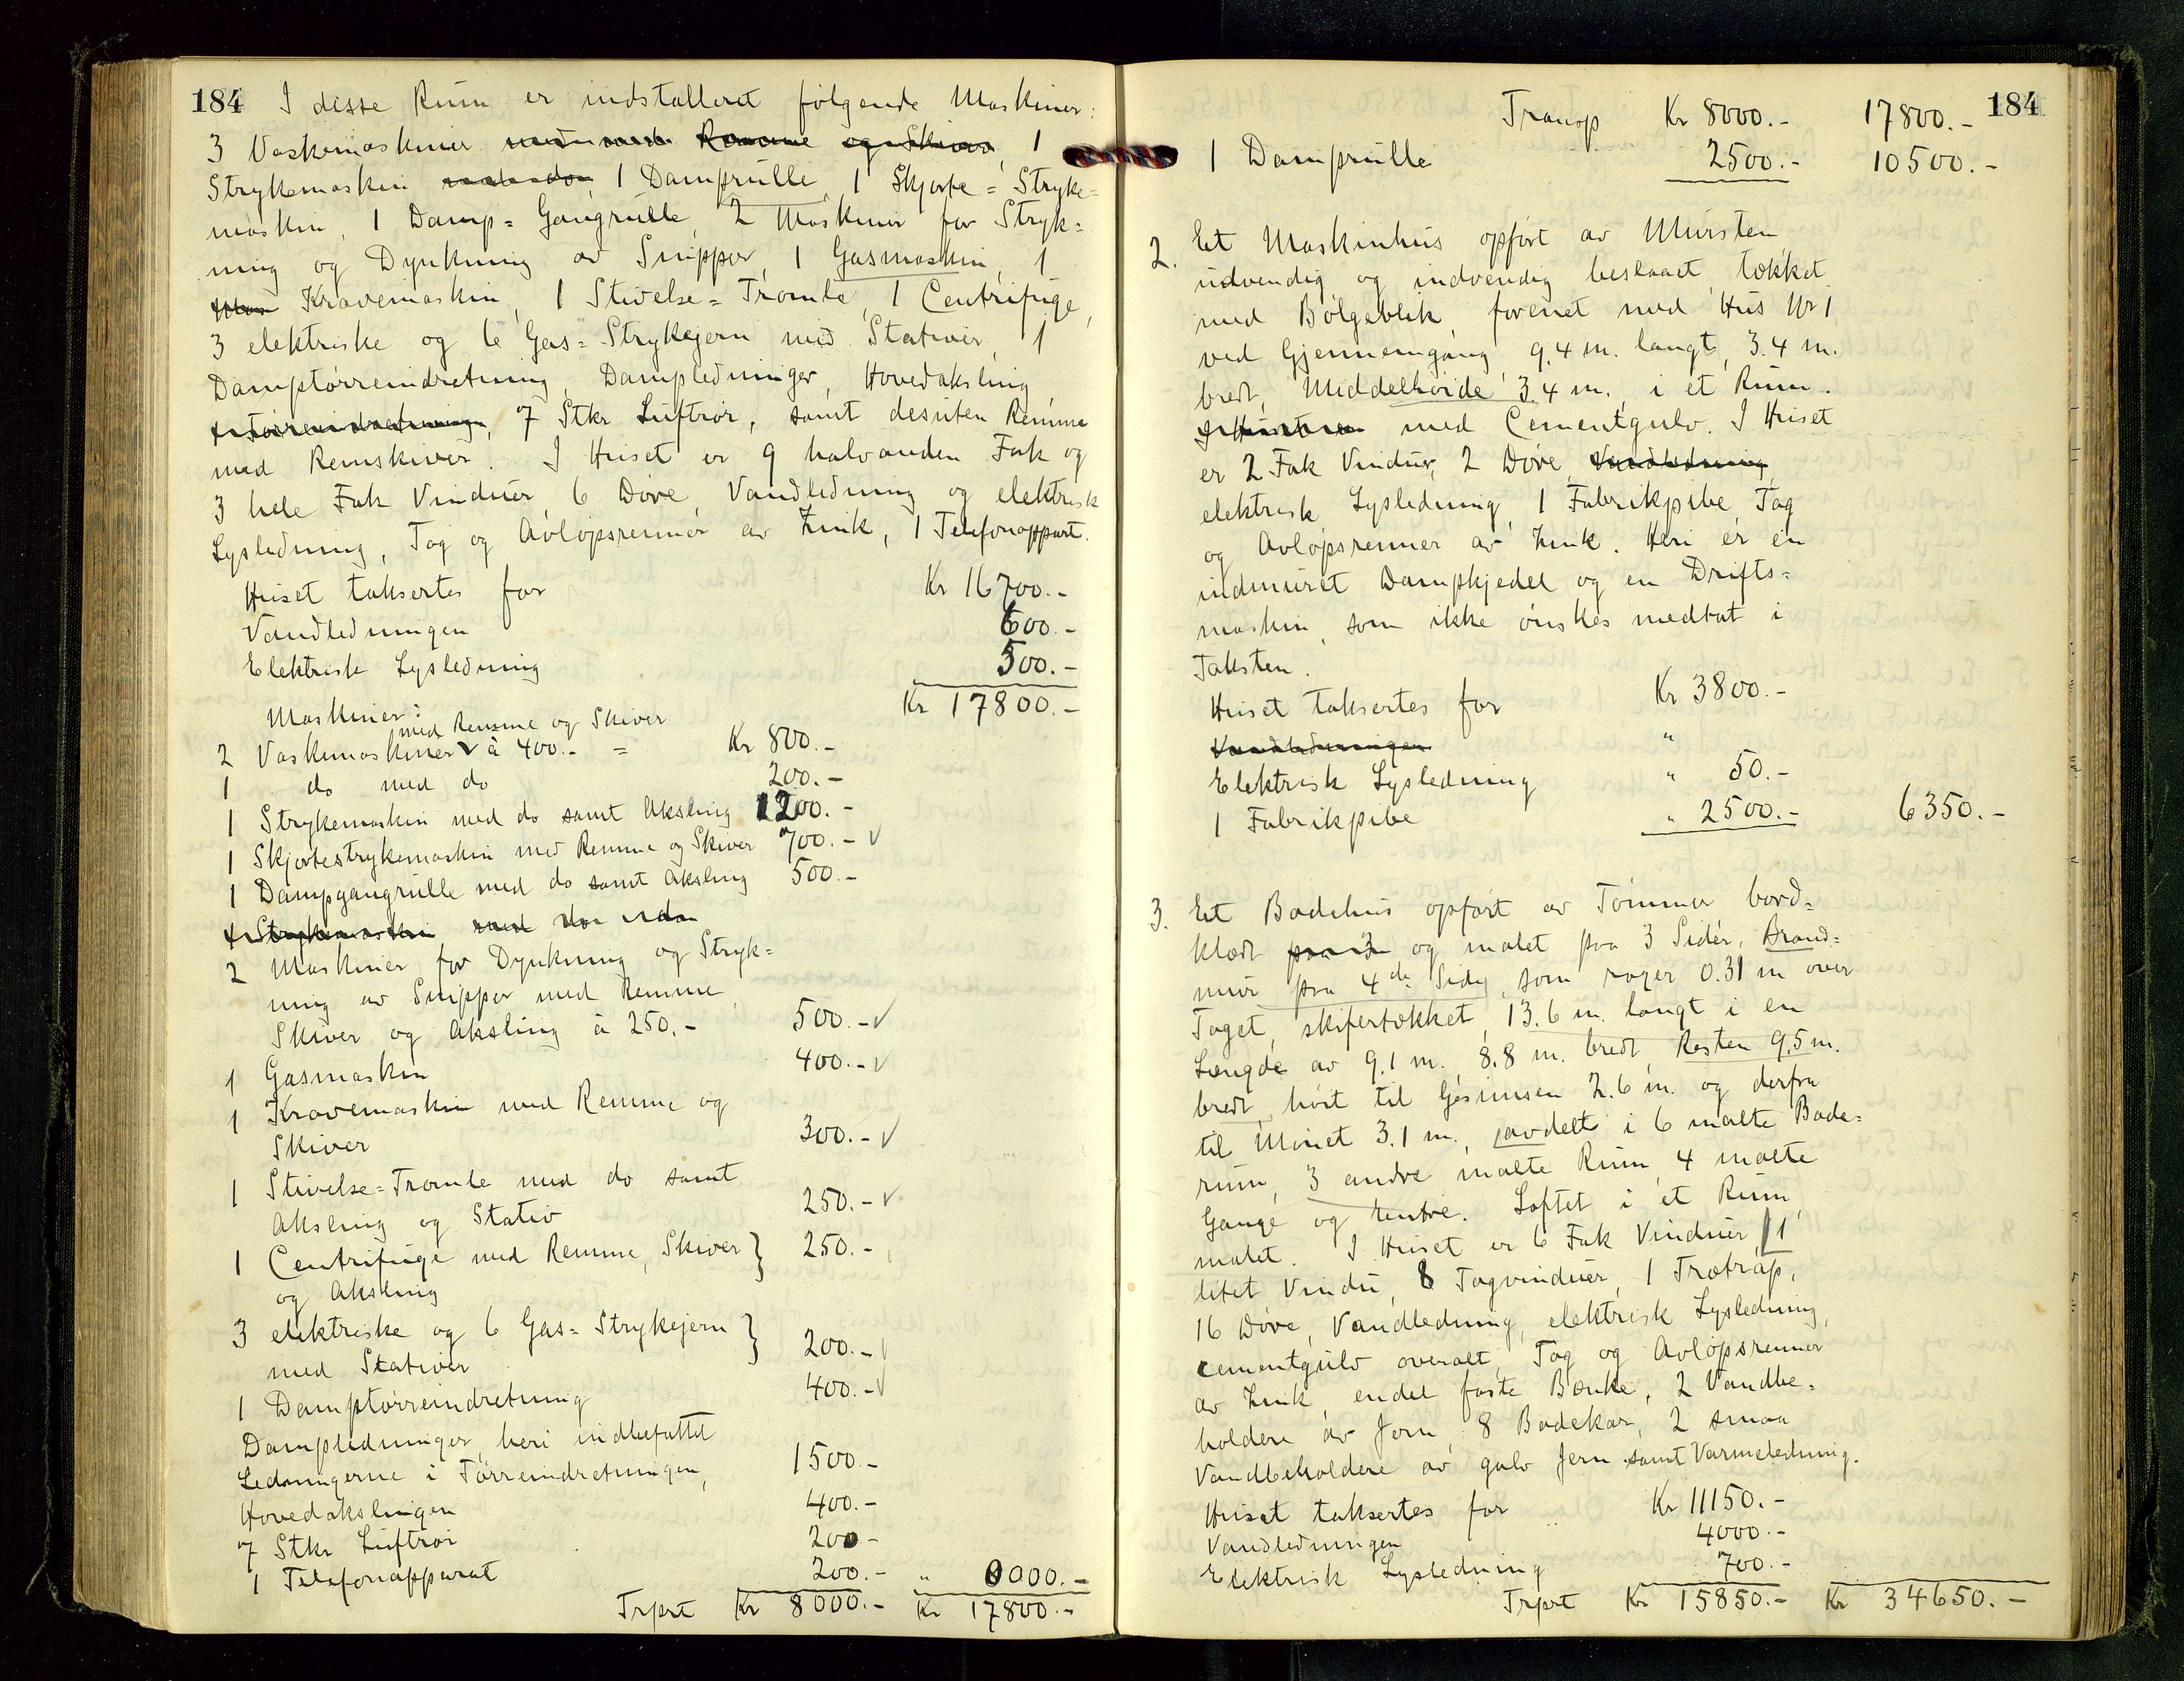 184 I disse Rum er indstalleret følgende Maskiner:
3 Vaskemaskiner med Remme og Skiver, 1
Strykemaskin 1 Damprulle, 1 Skjorte=Stryke=
maskin, 1 Damp=Gangrulle, 2 Maskiner for Stryk=
ning og Dynkning av Snipper, 1 Gasmaskin, 1
Kravemaskin, 1 Stivelse=Tromle, 1 Centrifuge,
3 elektriske og 6 Gas=Strykejern med Stativer, 1
Damptørreindretning, Dampledninger, Hovedaksling
1 Tørreindretning, 7 Stkr Luftrør, samt desuten Remme
med Remskiver. I Huset er 9 halvanden Fak og
3 hele Fak Vinduer, 6 Døre, Vandledning og elektrisk
Lysledning, Tag og Avløpsrenner av Zink, 1 Telefonapparat.
Huset taksertes for Kr 16700.-
Vandledningen 600.-
Elektrisk Lysledning 500.-
Kr 17800.-
Maskiner:
med Remme og Skiver
2 Vaskemaskiner à 400.- = Kr 800.-
1 do med do 200.-
1 Strykemaskin med do samt Aksling 1200.-
1 Skjortestrykemaskin med Remme og Skiver 700.- ✓
1 Dampgangrulle med do samt Aksling 500.-
1 Strykemaskin med do
2 Maskiner for Dynkning og Stryk=
ning av Snipper med Remme,
Skiver og Aksling à 250.- 500.- ✓
1 Gasmaskin 400.- ✓
1 Kravemaskin med Remme og
Skiver 300.- ✓
1 Stivelse=Tromle med do samt
Aksling og Stativ 250.- ✓
1 Centrifuge med Remme, Skiver } 250.-
og Aksling
3 elektriske og 6 Gas=Strykejern }
med Stativer 200.- ✓
1 Damptørreindretning 400.- ✓
Dampledninger, heri indbefattet
Ledningerne i Tørreindretningen, 1500.-
Hovedakslingen 400.-
7 Stkr Luftrør 200.-
1 Telefonapparat 200.- " 0000.-
Trprt Kr 8000.- Kr 17800.-
184
Transp Kr 8000.- 17800.-
1 Damprulle 2500.- 10500.-
2. Et Maskinhus opført av Mursten,
utvendig og indvendig beslaaet, tækket
med Bølgeblik, forenet med Hus Nr 1
ved Gjennemgang, 9.4 m. langt, 3.4 m.
bredt, Middelhøide 3.4 m., i et Rum.
med Cementgulv. I Huset
er 2 Fak Vinduer, 2 Døre, Vandledning,
elektrisk Lysledning, 1 Fabrikpibe, Tag
og Avløpsrenner av Zink. Heri er en
indmuret Dampkjedel og en Drifts=
maskin, som ikke ønskes medtat i
Taksten.
Huset taksertes for Kr 3800.-
Vandledningen "
Elektrisk Lysledning " 50.-
1 Fabrikpibe " 2500.- 6350.-
3. Et Badehus opført av Tømmer, bord=
klædt paa 3 og malet paa 3 Sider, Brand=
mur paa 4de Side, som rager 0.31 m over
Taget, skifertækket, 13.6 m. langt i en
Længde av 9.1 m., 8.8 m. bredt, Resten 9.5 m.
bredt, høit til Gesimsen 2.6 m. og derfra
til Mønet 3.1 m., avdelt i 6 malte Bade=
rum, 3 andre malte Rum, 4 malte
Gange og Entre. Loftet i et Rum,
malet. I Huset er 6 Fak Vinduer, 1
litet Vindu, 8 Tagvinduer, 1 Trætrap,
16 Døre, Vandledning, elektrisk Lysledning,
Cementgulv overalt, Tag og Avløpsrenner
av Zink, endel faste Bænke, 2 Vandbe=
holdere av Jern, 8 Badekar, 2 smaa
Vandbeholdere av galv Jern samt Varmeledning.
Huset taksertes for Kr 11150.-
Vandledningen 4000.-
Elektrisk Lysledning 700.-
Trprt Kr 15850.- Kr 34650.-